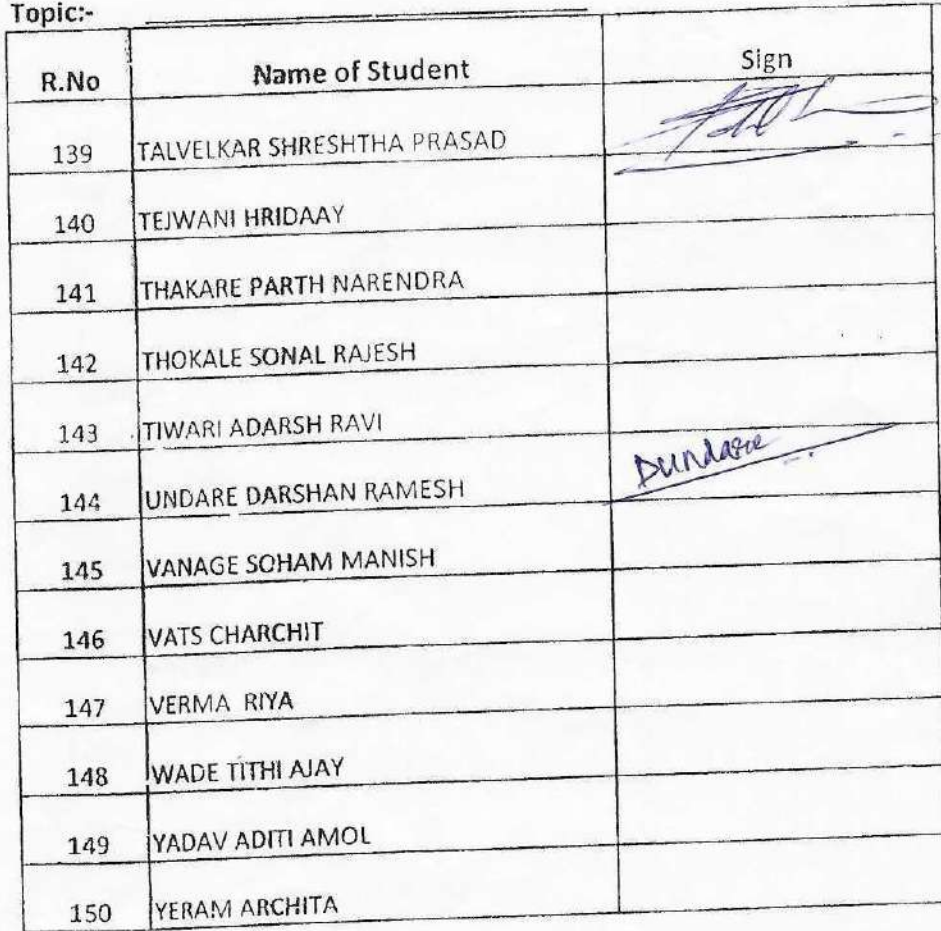 Topic:-
R.No Name of Student Sign
139 TALVELKAR SHRESHTHA PRASAD
140 TEJWANI HRIDAAY
141 THAKARE PARTH NARENDRA
142 THOKALE SONAL RAJESH
143 TIWARI ADARSH RAVI
144 UNDARE DARSHAN RAMESH Dundare
145 VANAGE SOHAM MANISH
146 VATS CHARCHIT
147 VERMA RIYA
148 WADE TITHI AJAY
149 YADAV ADITI AMOL
150 YERAM ARCHITA